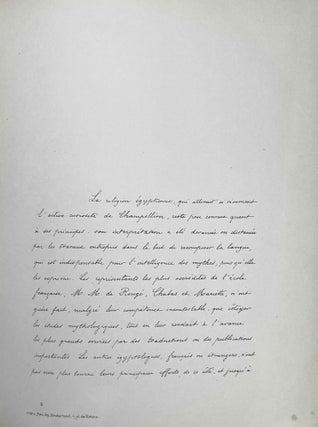 La religion égyptienne, qui attirait si vivement
l'active curiosité de Champollion, reste peu connue quant
à ses principes. Son interprétation a été devancée ou distancée
par les travaux entrepris dans le but de recomposer la langue,
qui est indispensable pour l'intelligence des mythes, puisqu'elle
les exprime. Les représentants les plus accrédités de l'école
française, M. M. de Rougé, Chabas et Mariette, n'ont
guère fait, malgré leur compétence incontestable, que côtoyer
les études mythologiques, tout en leur rendant à l'avance
les plus grands services par des traductions ou des publications
importantes. Les autres égyptologues, français ou étrangers, n'ont
pas non plus tourné leurs principaux efforts de ce côté, et jusqu'à